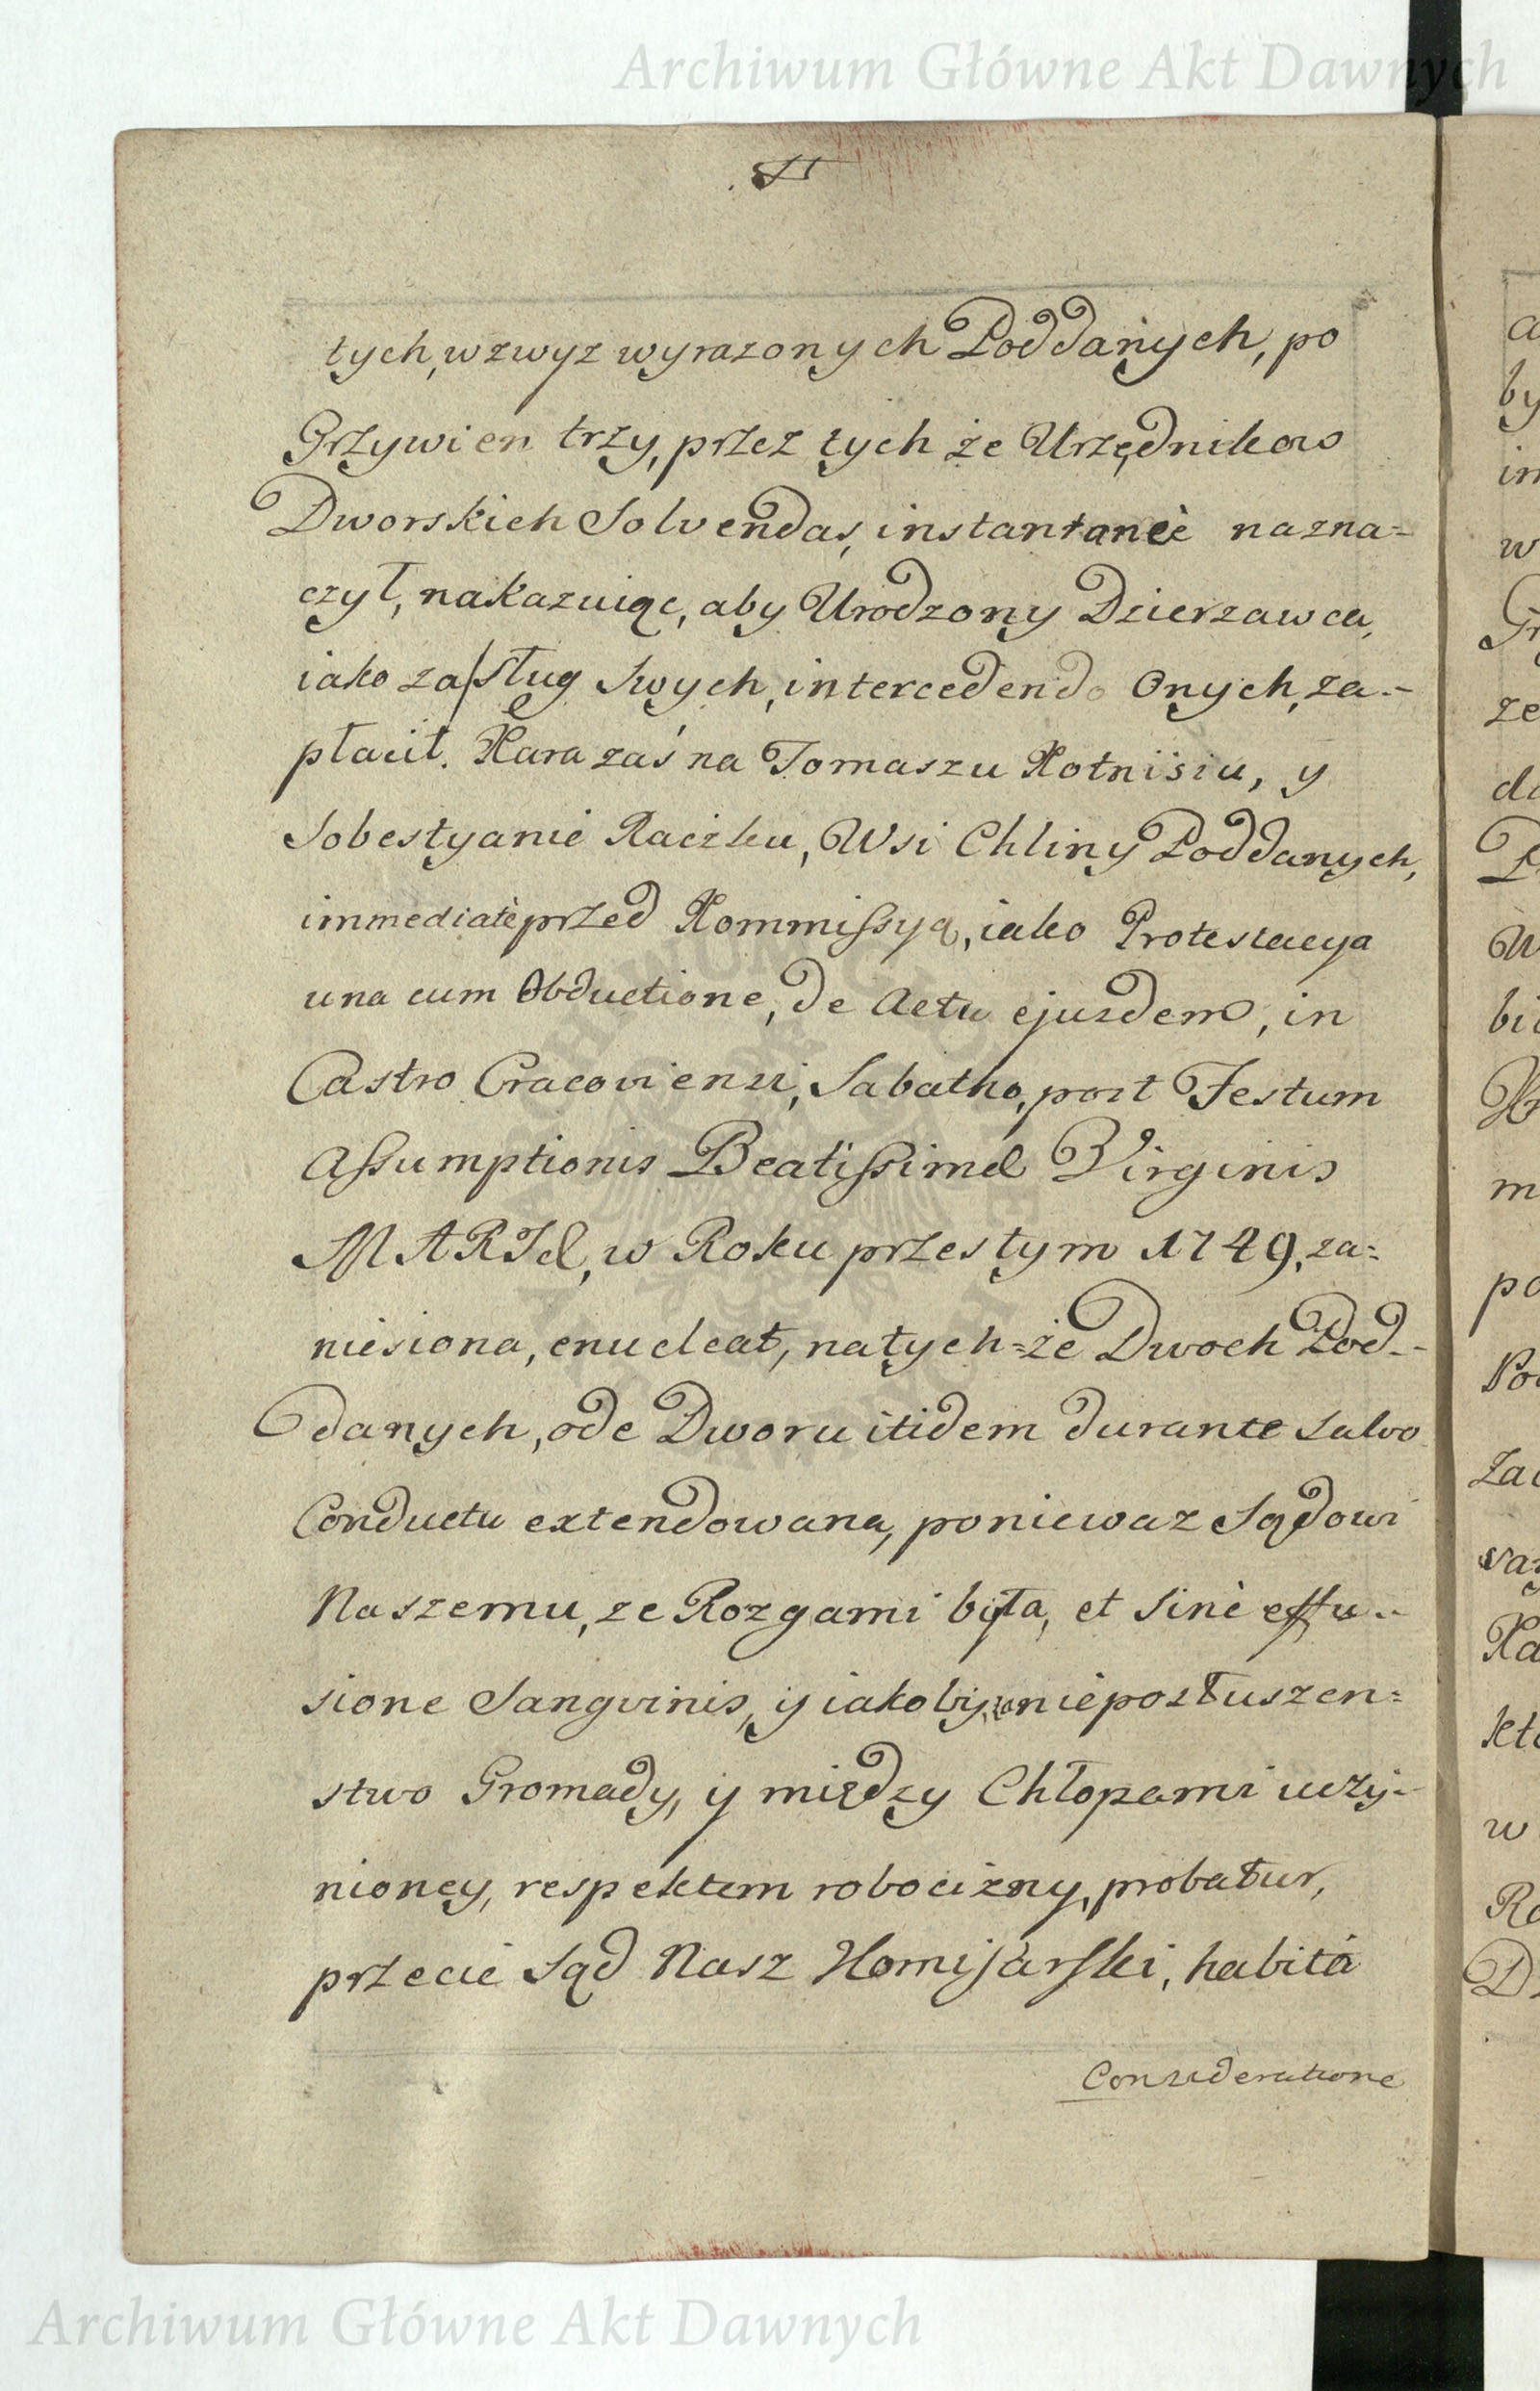 Archiwum Główne Akt Dawnych
tych, wzwyz wyrazonych Poddanych, po
Grzywien trzy, przez tych że Urzędnikow
Dworskich Solvendas, instantaneè nazna=
czył, nakazuiąc, aby Urodzony Dzierzawca,
iako za sług Swych, intercedendo Onych, za-
płacił. Kara zaś na Tomaszu Kotnisiu, y
Sobestyanie Raczku, Wsi Chliny Poddanych,
immediatè przed Kommissyą, iako Protestacya
una cum Obductione, de Actu ejusdem, in
Castro Cracoviensi, Sabatho, post Festum
Assumptionis Beatissimæ Virginis
MARIæ, w Roku przestym 1749, za=
niesiona, enucleat, natych=że Dwoch Pod-
danych, ode Dworu itidem durante salvo
Conductu extendowana, poniewaz Sądowi
Naszemu, ze Rozgami była, et sinè effu-
sione Sangvinis, y iakoby, za nieposłuszen=
stwo Gromady, y między Chłopami uczy-
nioney, respektem robocizny, probatur,
przecie Sąd Nasz Komisarski, habitâ
Consideratione
a
by
in
w
Gr
ze
W
bi
m
po
w
Archiwum Główne Akt Dawnych